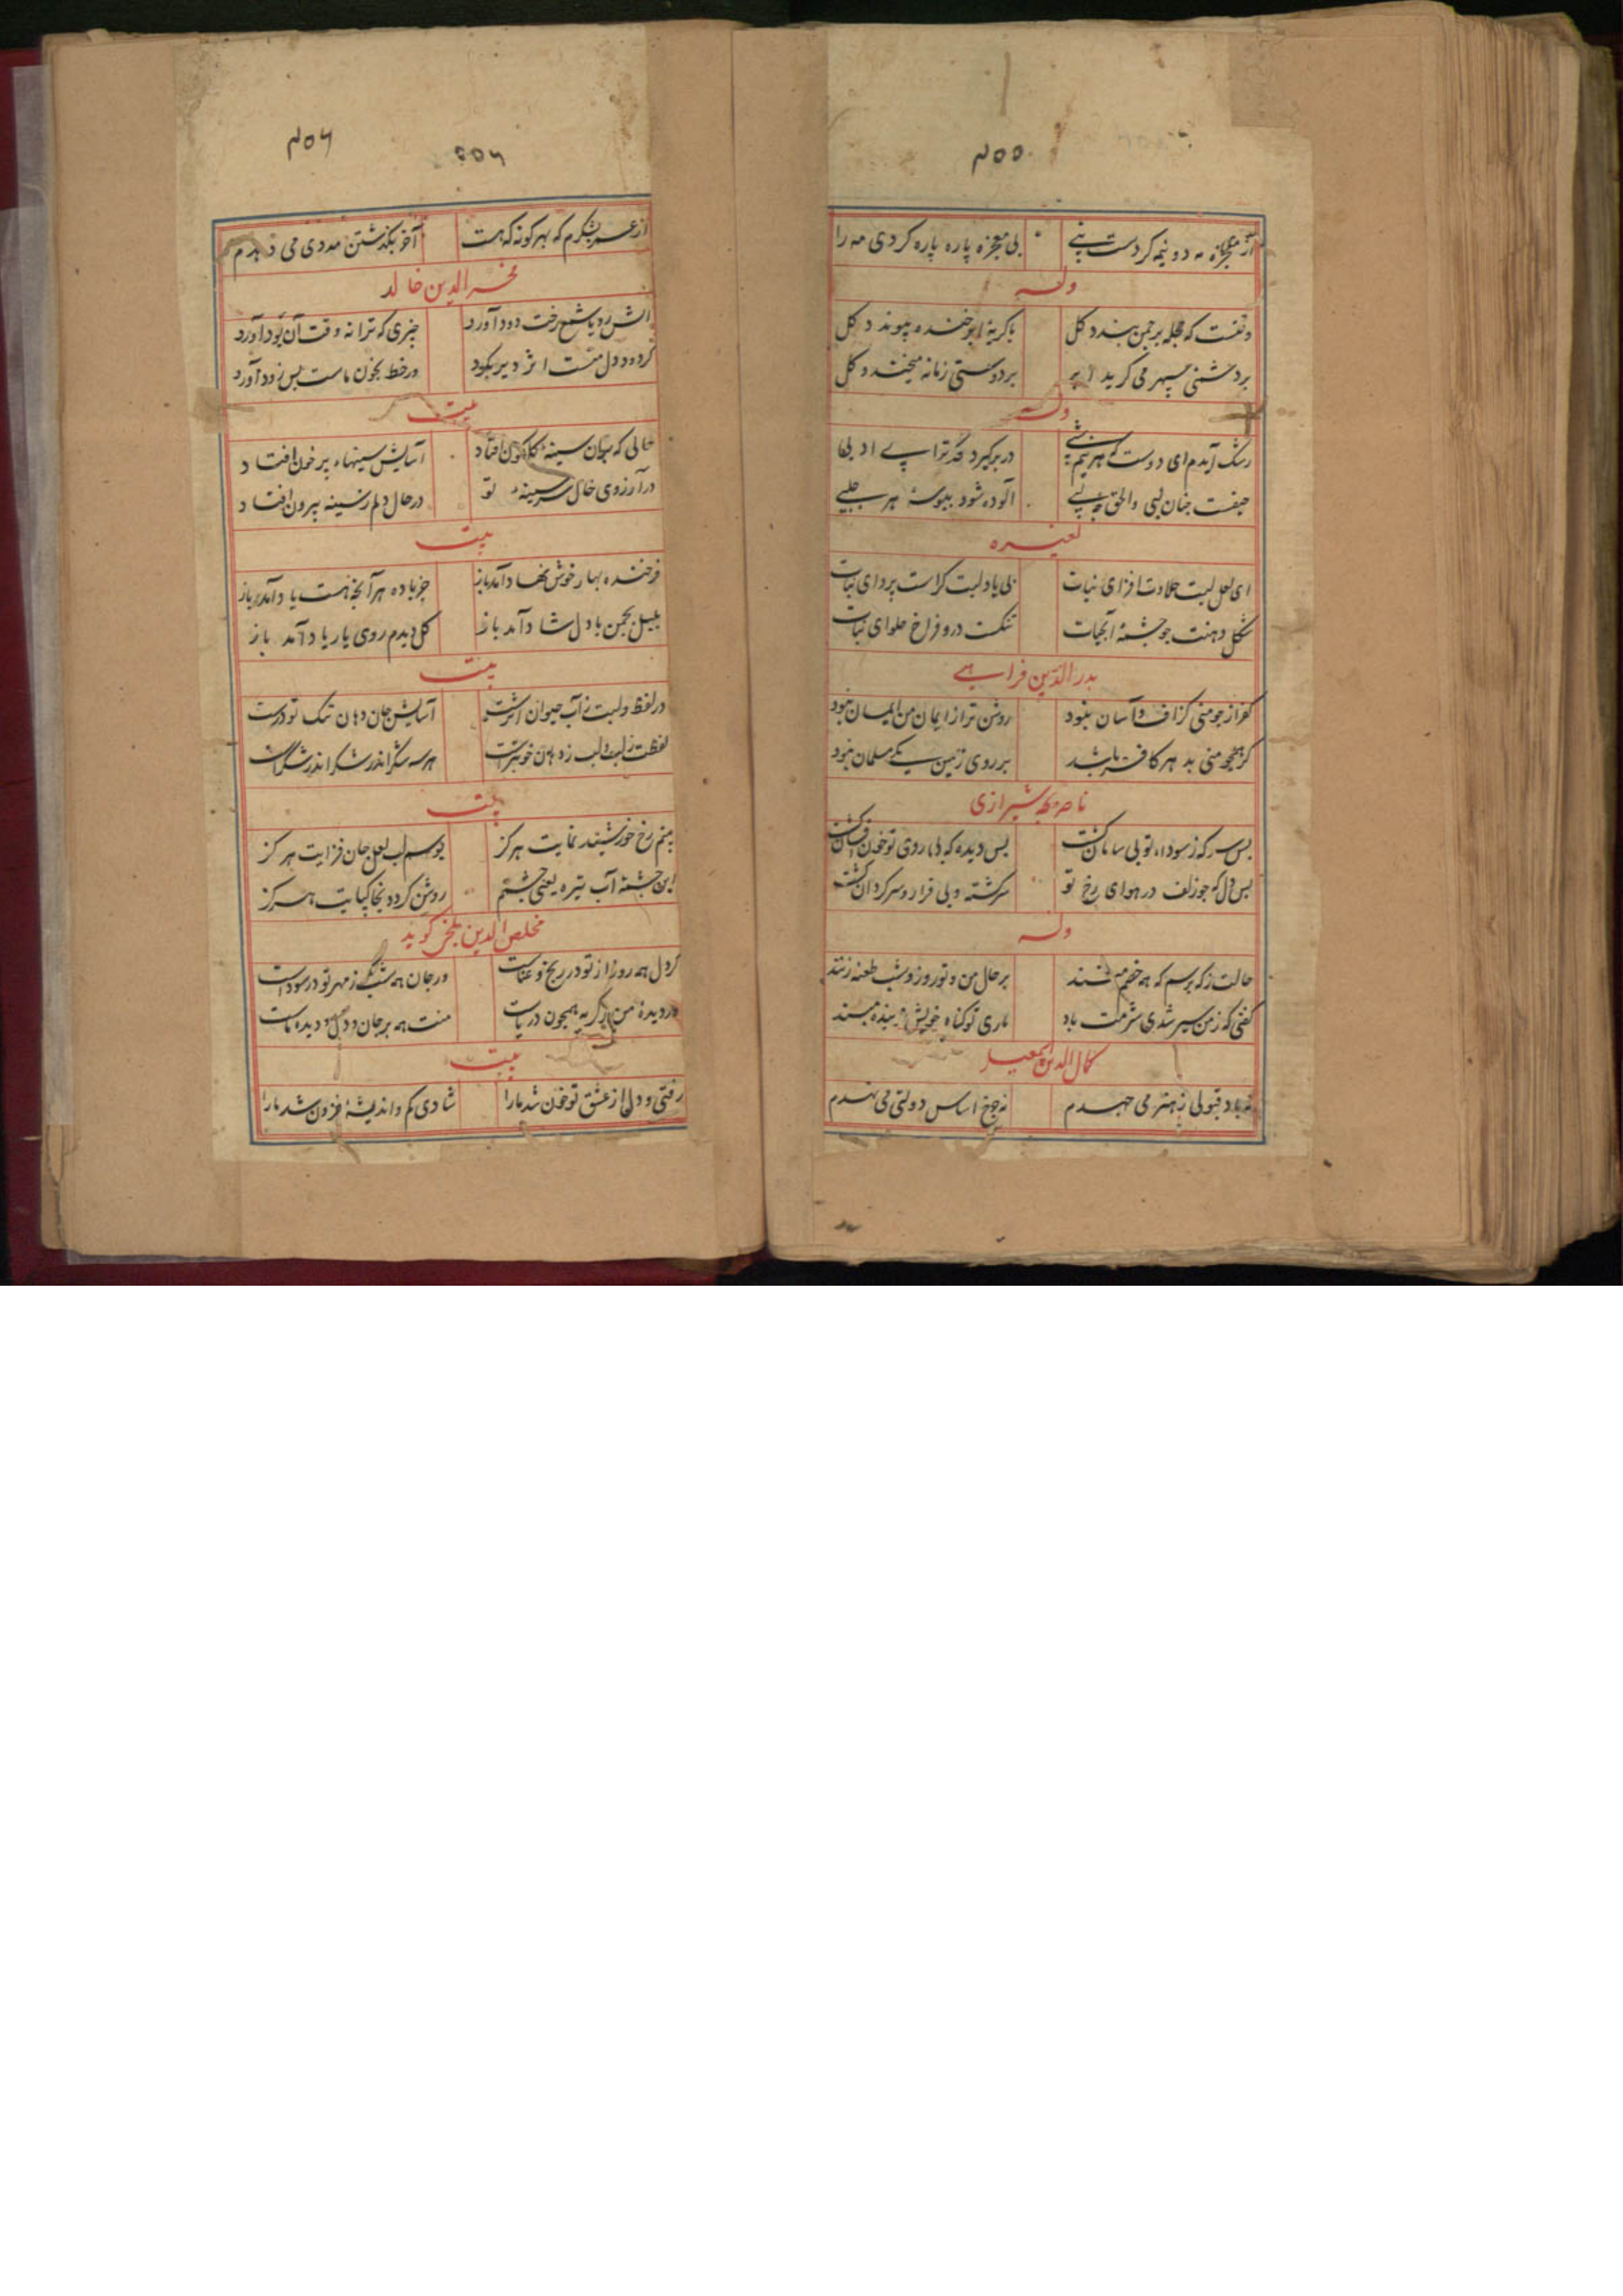 ۴۵۵
از معجزه مه دو نیمه کردست نبی بی معجزه پاره پاره کردی مه را
وله
وقتست که حجله بر چمن بندد گل با گریهٔ ابر خنده پیوندد گل
بر دشمنی سپهر می گرید ابر بر دوستی زمانه میخندد گل
وله
رشک آیدم ای دوست که هر در بر گیرد قد ترا بی ادبی
حیفست چنان لبی والحق چه لبی آلوده شود ببوسهٔ هر جلبی
لغیره
ای لعل لبت حلاوت افزای نبات بی یاد لبت کراست پروای نبات
شکل دهنت چو چشمهٔ آبحیات تنگست درو فراخ حلوای نبات
بدر الدین فراهی
کفر از چو منی گزاف و آسان نبود روشن تر از ایمان من ایمان نبود
گر همچو منی بد هر کافر باشد بر روی زمین یک مسلمان نبود
ناصر شیرازی
بس سر که ز سودای تو بی سامان گشت بس دیده که بی روی تو خون افشان گشت
بس دل که چو زلف در هوای رخ تو سرگشته و بی قرار و سرگردان گشت
وله
حالت ز که پرسم که همه خصم منند بر حال من و تو روز و شب طعنه زنند
گفتی که ز من سیر شدی شرمت باد باری تو گناه خویش بر بنده مبند
کمال الدین اسمعیل
نه باد قبولی ز هنر می جهدم نه چرخ اساس دولتی می نهدم
۴۵۶
۴۵۶
از عمر بنگرم که بهر گونه که هست آخر بگذشتن مددی می دهدم
فخر الدین خالد
آتش رویا شمع رخت دود آورد چیزی که ترا نه وقت آن بود آورد
گر دود دل منست اثر دیر بکرد ور خط بخون ماست بس زود آورد
بیت
خالی که میان سینه گلگون افتاد آسایش سینهاء پر خون افتاد
در آرزوی خال سر سینهٔ تو در حال دلم ز سینه بیرون افتاد
بیت
فرخنده بهار خوش نهاد آمد باز جز باده هر آنچه هست باد آمد باز
بلبل بچمن با دل شاد آمد باز گل دیدم روی یار یاد آمد باز
بیت
در لفظ و لبت ز آب حیوان اثرست آسایش جان دهان تنگ تو درست
لفظت ز لب و لب ز دهان خوبترست هر سه شکر اندر شکر اندر شکرست
بیت
بینم رخ خورشید نمایت هرگز بوسم لب لعل جان فزایت هرگز
این چشمهٔ آب تیره یعنی چشمم روشن گردد بخاکپایت هرگز
مخلص الدین بلخی گوید
گر دل همه روز از تو در رنج و عناست ور جان همه شب ز مهر تو در سوداست
ور دیدهٔ من ز گریه همچون دریاست منت همه بر جان و دل و دیدهٔ ماست
بیت
رفتی و دل از عشق تو خون شد ما را شادی کم و اندیشه فزون شد ما را